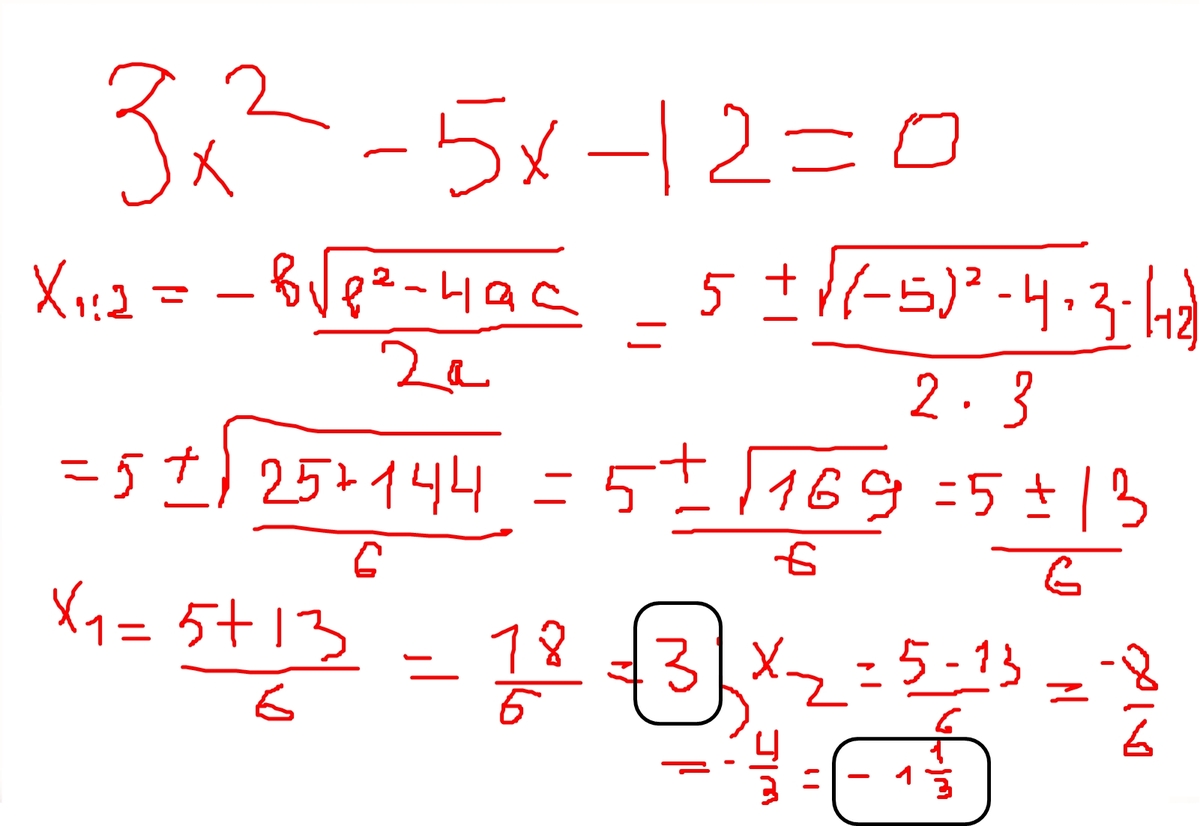 3x² - 5x - 12 = 0
x₁,₂ = -b√(b² - 4ac)/2a = 5 ± √((-5)² - 4 · 3 · (-12))/(2 · 3)
= 5 ± √(25 + 144)/6 = 5 ± √169/6 = 5 ± 13/6
x₁ = (5 + 13)/6 = 18/6 = 3, x₂ = (5 - 13)/6 = -8/6
= -4/3 = -1 1/3